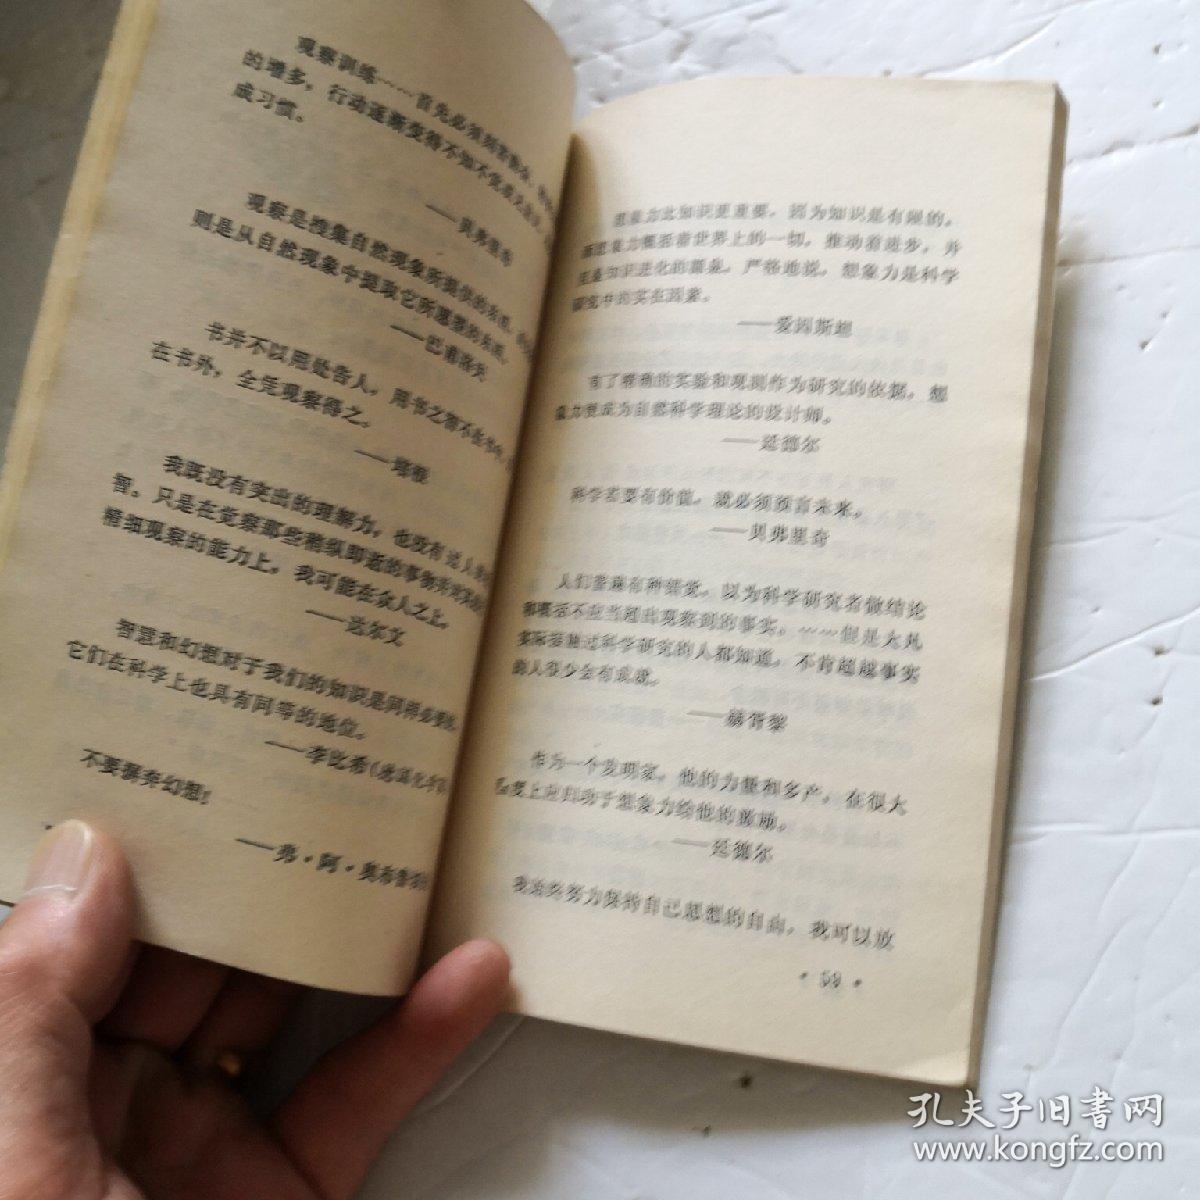 观察训练……首先必须
的增多，行动逐渐变得不知不觉
成习惯。
——贝弗里奇
观察是搜集自然现象所提供的
则是从自然现象中提取它所愿望的
——巴甫洛夫
书并不以用处告人，用书之智不在书中，
在书外，全凭观察得之。
——培根
我既没有突出的理解力，也没有过人的
智。只是在觉察那些稍纵即逝的事物
精细观察的能力上，我可能在众人之上。
——达尔文
智慧和幻想对于我们的知识是同样必要的，
它们在科学上也具有同等的地位。
——李比希（德国化学
不要摒弃幻想！
——弗·阿·奥布鲁
想象力比知识更重要，因为知识是有限的，
而想象力概括着世界上的一切，推动着进步，并
且是知识进化的源泉。严格地说，想象力是科学
研究中的实在因素。
——爱因斯坦
有了精确的实验和观测作为研究的依据，想
象力便成为自然科学理论的设计师。
——廷德尔
科学若要有价值，就必须预言未来。
——贝弗里奇
人们普遍有种错觉，以为科学研究者做结论
和概括不应当超出观察到的事实。……但是大凡
实际接触过科学研究的人都知道，不肯超越事实
的人很少会有成就。
——赫胥黎
作为一个发明家，他的力量和多产，在很大
程度上应归功于想象力给他的激励。
——廷德尔
我始终努力保持自己思想的自由，我可以放
·59·
孔夫子旧书网
www.kongfz.com